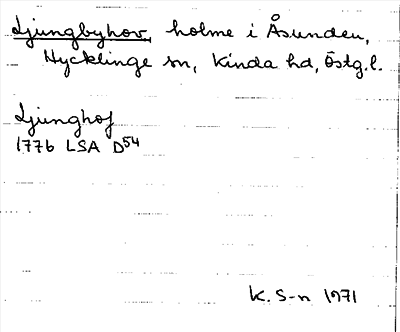 Ljungbyhov, holme i Åsunden,
Hycklinge sn, Kinda hd, Östg.l.
Ljunghof
1776 LSA D54
K. S-n 1971